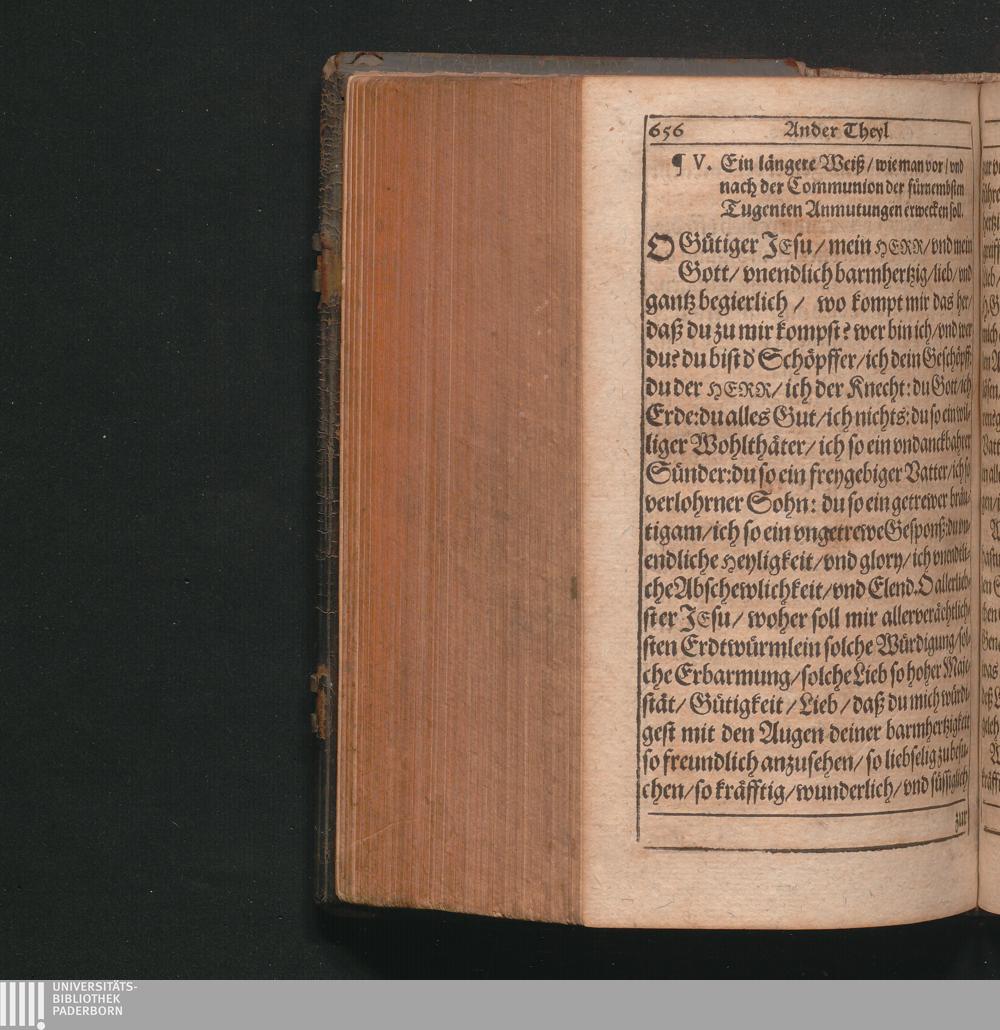 656 Ander Theyl
¶ V. Ein längere Weiß / wie man vor / vnd
nach der Communion der fürnembsten
Tugenten Anmutungen erwecken soll.
O Gütiger JEsu / mein HERR / vnd mein
Gott / vnendlich barmhertzig / lieb / vnd
gantz begierlich / wo kompt mir das her /
daß du zu mir kompst? wer bin ich / vnd wer
du? du bist d' Schöpffer / ich dein Geschöpff:
du der HERR / ich der Knecht: du Gott / ich
Erde: du alles Gut / ich nichts: du so ein wil-
liger Wohlthäter / ich so ein vndanckbahrer
Sünder: du so ein freygebiger Vatter / ich so
verlohrner Sohn: du so ein getrewer bräu-
tigam / ich so ein vngetrewe Gesponß: du vn-
endliche Heyligkeit / vnd glory / ich vnendtli-
che Abschewlichkeit / vnd Elend. O allerlieb-
ster JEsu / woher soll mir allerverächtlich-
sten Erdtwürmlein solche Würdigung / sol-
che Erbarmung / solche Lieb so hoher Maje-
stät / Gütigkeit / Lieb / daß du mich würdi-
gest mit den Augen deiner barmhertzigkeit
so freundlich anzusehen / so liebselig zu besu-
chen / so kräfftig / wunderlich / vnd süssiglich
zur
UNIVERSITÄTS-
BIBLIOTHEK
PADERBORN